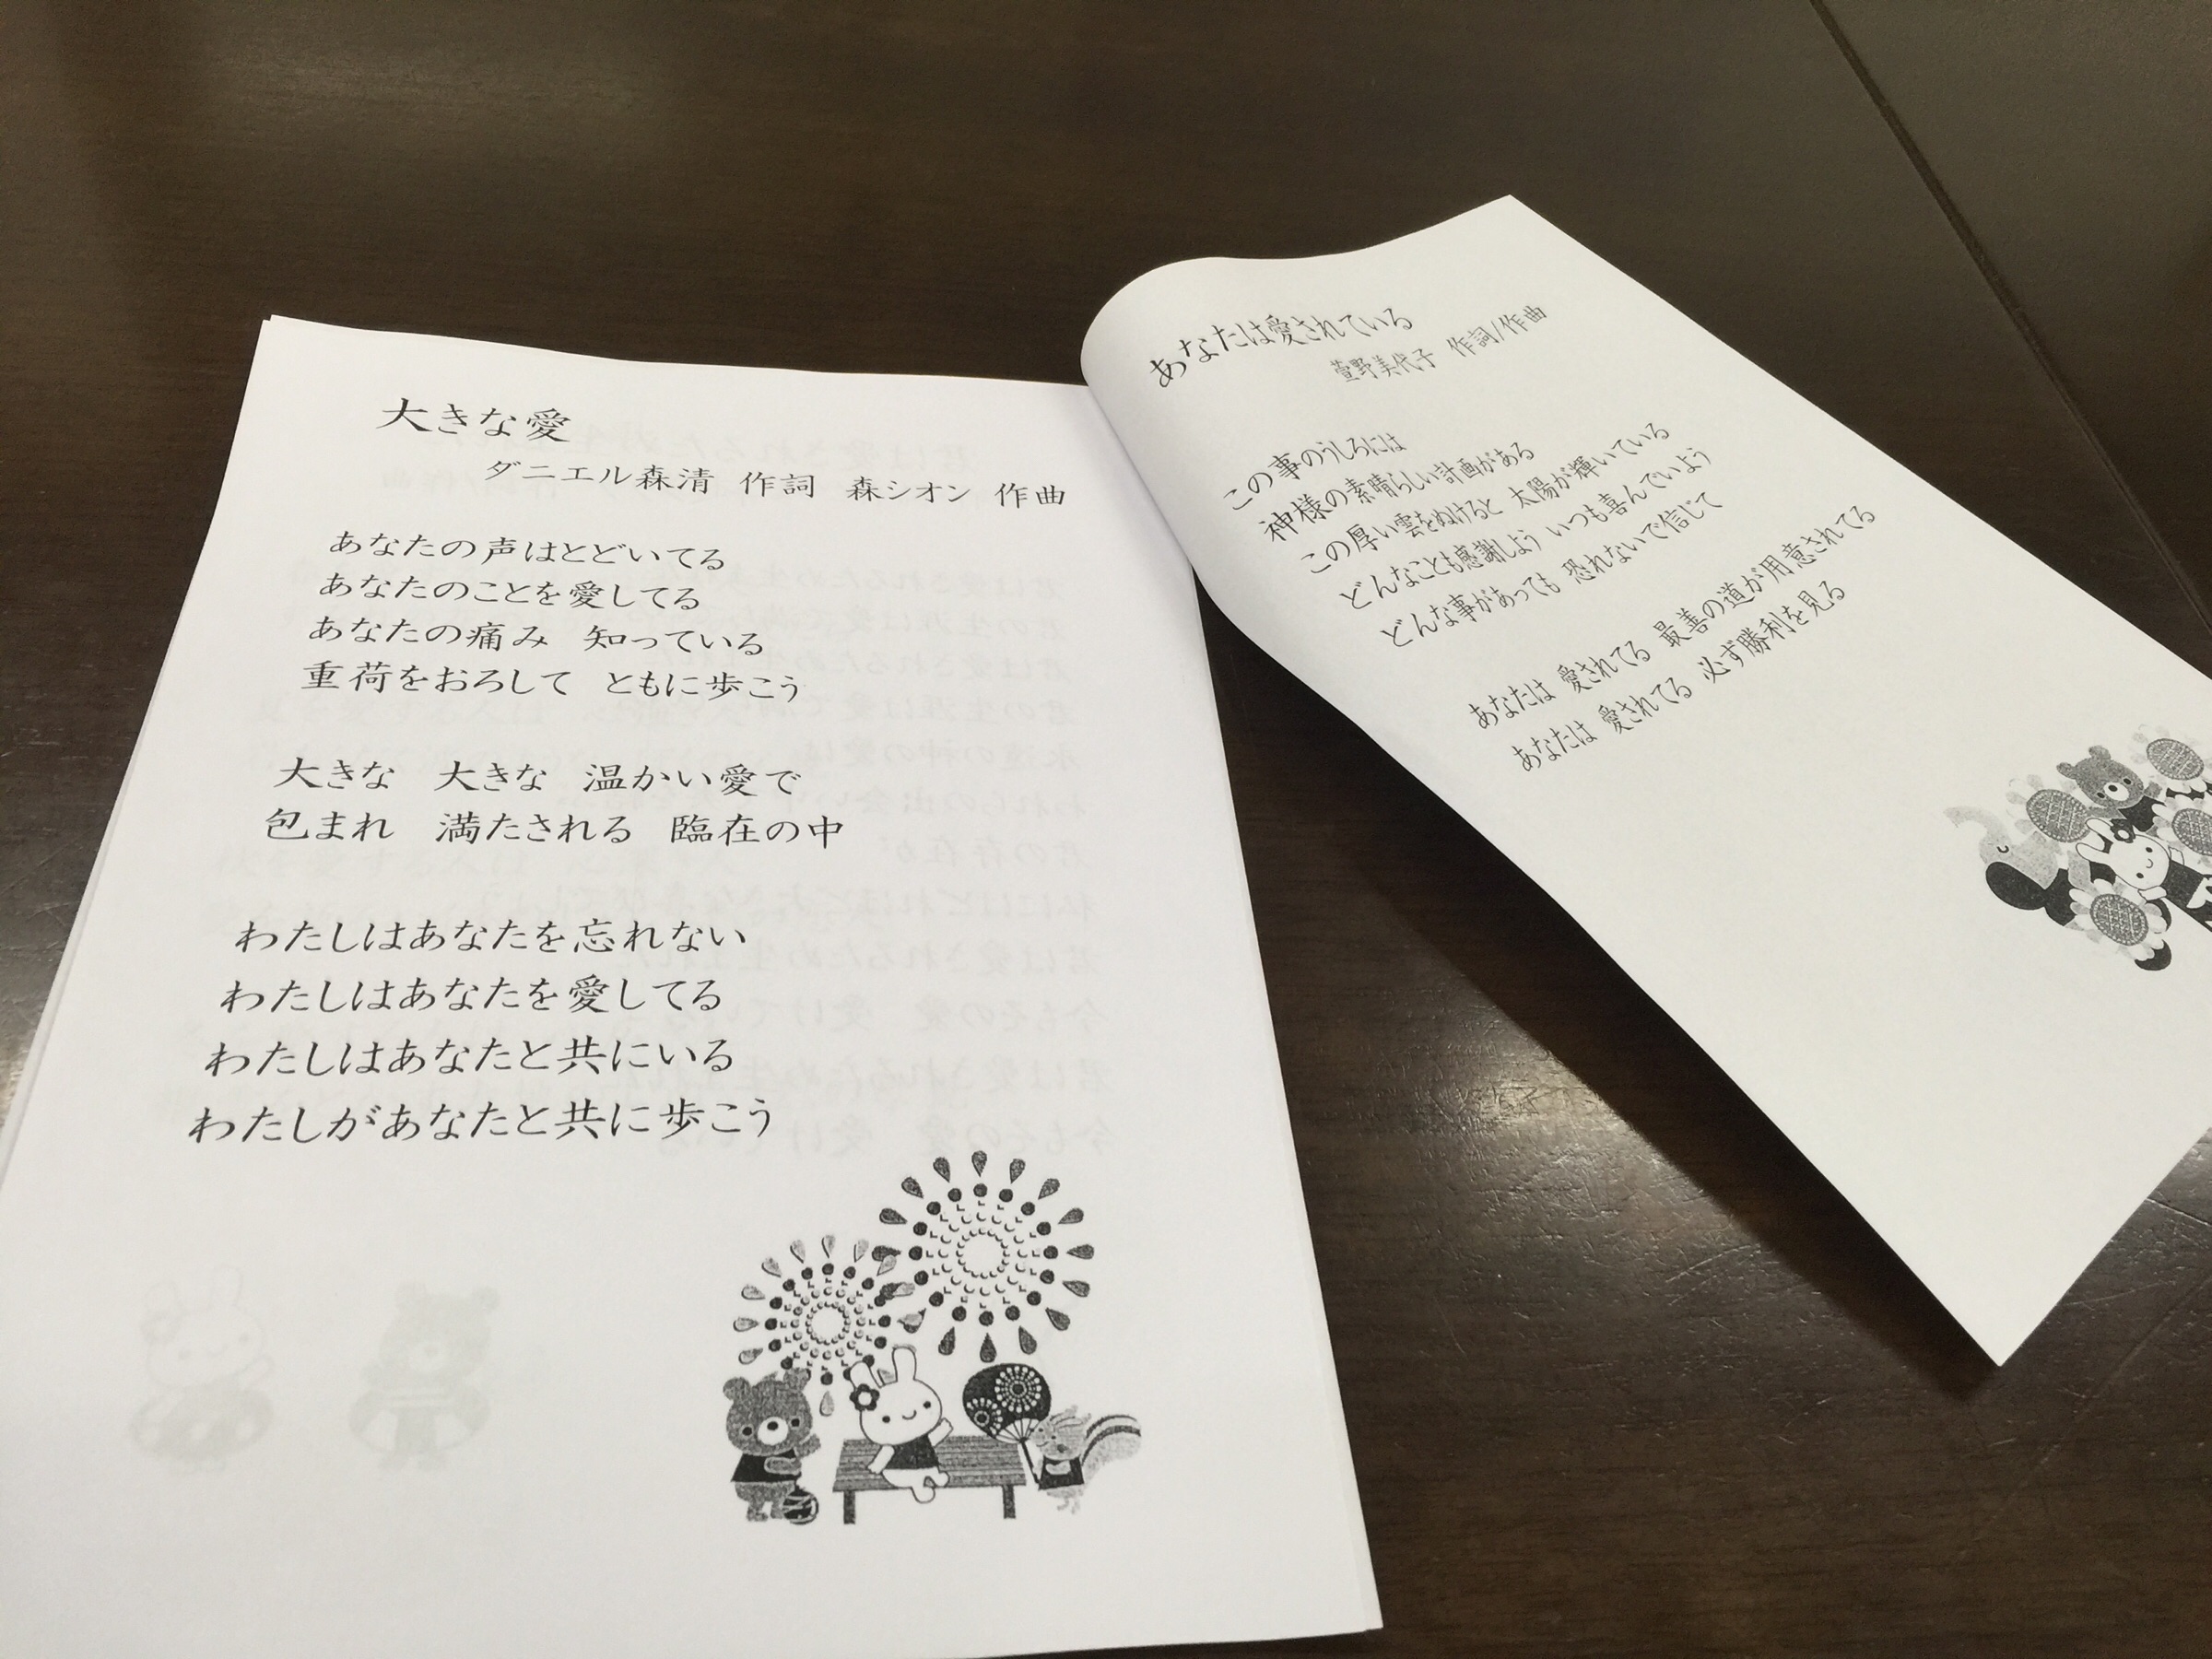 大きな愛
ダニエル森清 作詞 森シオン 作曲
あなたの声はとどいてる
あなたのことを愛してる
あなたの痛み 知っている
重荷をおろして ともに歩こう
大きな 大きな 温かい愛で
包まれ 満たされる 臨在の中
わたしはあなたを忘れない
わたしはあなたを愛してる
わたしはあなたと共にいる
わたしがあなたと共に歩こう
あなたは愛されている
菅野美代子 作詞/作曲
この事のうしろには
神様の素晴らしい計画がある
この厚い雲をぬけると 太陽が輝いている
どんなことも感謝しよう いつも喜んでいよう
どんな事があっても 恐れないで信じて
あなたは 愛されてる 最善の道が用意されてる
あなたは 愛されてる 必ず勝利を見る